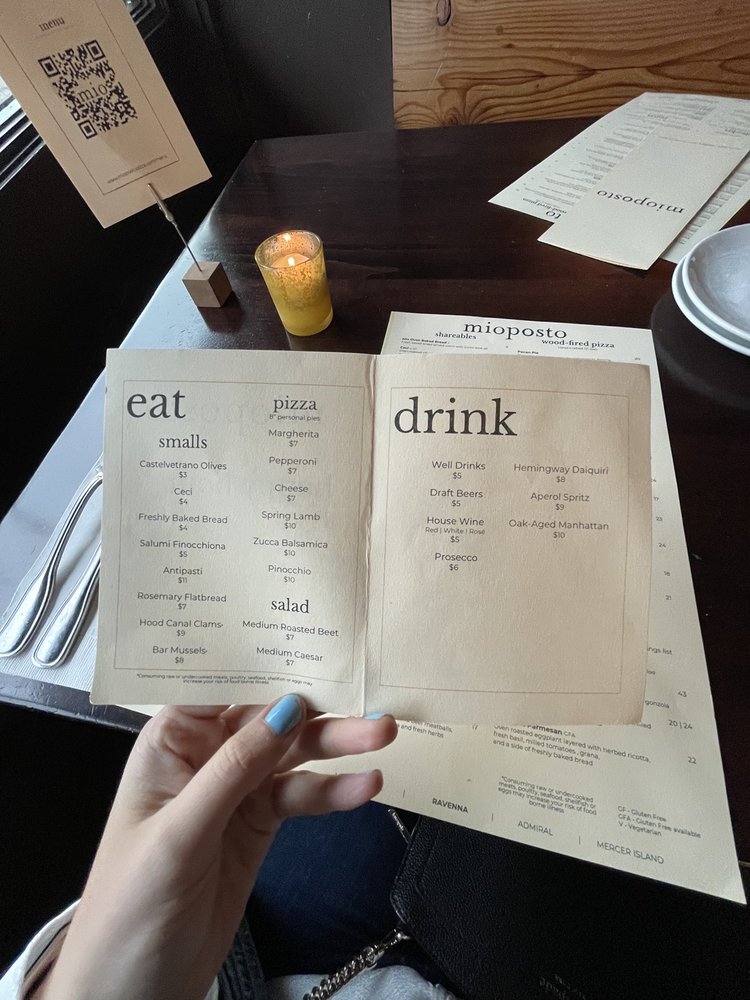 menu
mio
mioposto
mioposto
shareables
wood-fired pizza
eat
smalls
Castelvetrano Olives
$3
Ceci
$4
Freshly Baked Bread
$4
Salumi Finocchiona
$5
Antipasti
$11
Rosemary Flatbread
$7
Hood Canal Clams*
$9
Bar Mussels*
$8
pizza
8" personal pies
Margherita
$7
Pepperoni
$7
Cheese
$7
Spring Lamb
$10
Zucca Balsamica
$10
Pinocchio
$10
salad
Medium Roasted Beet
$7
Medium Caesar
$7
*Consuming raw or undercooked meats, poultry, seafood, shellfish or eggs may
increase your risk of food borne illness
drink
Well Drinks
$5
Draft Beers
$5
House Wine
Red | White | Rosé
$5
Prosecco
$6
Hemingway Daiquiri
$8
Aperol Spritz
$9
Oak-Aged Manhattan
$10
17
23
24
18
21
ngs list
gonzola
43
20 | 24
Parmesan GFA
Oven roasted eggplant layered with herbed ricotta,
fresh basil, milled tomatoes, grana,
and a side of freshly baked bread
22
beef meatballs,
and fresh herbs
17
*Consuming raw or undercooked
meats, poultry, seafood, shellfish or
eggs may increase your risk of food
borne illness
GF - Gluten Free
GFA - Gluten Free available
V - Vegetarian
RAVENNA | ADMIRAL | MERCER ISLAND